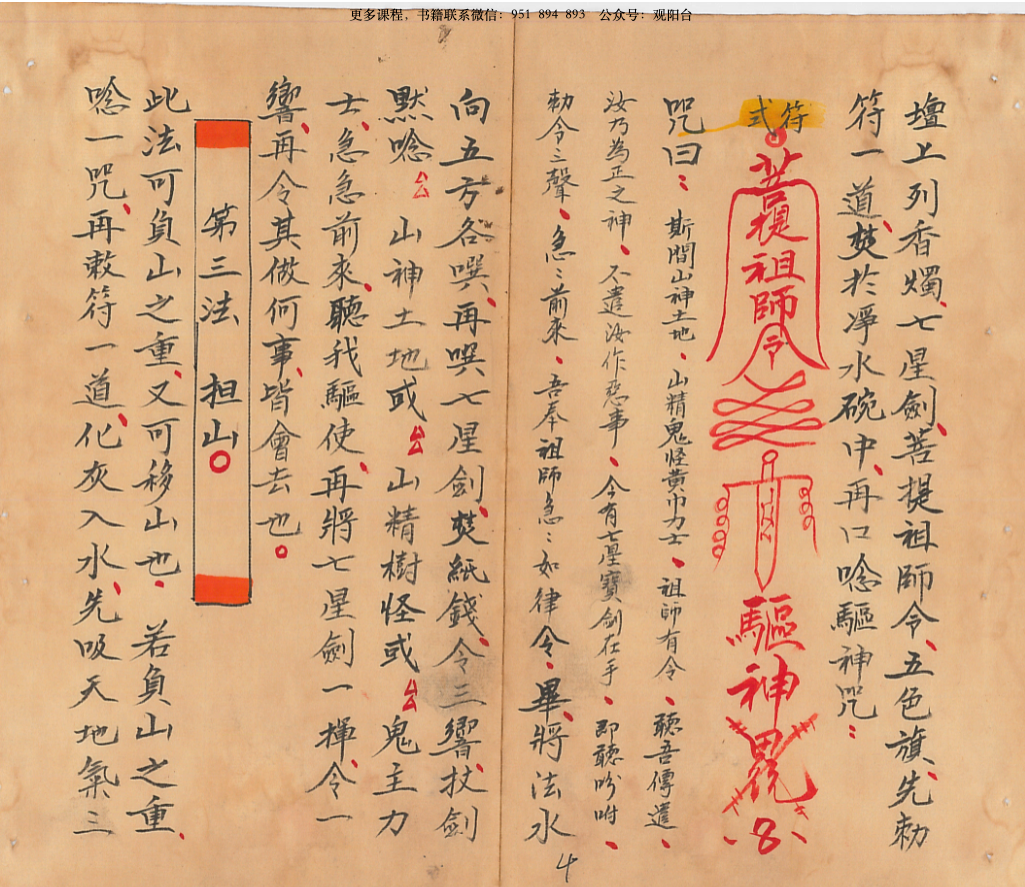 更多课程，书籍联系微信：951 894 893　公众号：观阳台
壇上列香燭、七星劍、菩提祖師令、五色旗、先勅
符一道、焚於凈水碗中、再口唸驅神咒：
符式
菩提祖師令
驅神
咒曰：斯間山神土地、山精鬼怪黄巾力士、祖師有令、聽吾傳遣、
汝乃為正之神、不遣汝作惡事、今有七星寶劍在手、即聽吩咐、
勅令三聲、急：前來、吾奉祖師急：如律令、畢、將法水
4
向五方各噀、再噀七星劍、焚紙錢、令三響、杖劍
默唸 山神土地或 山精樹怪或 鬼主力
士、急急前來、聽我驅使、再將七星劍一揮、令一
響、再令其做何事、皆會去也。
第三法 担山
此法可負山之重、又可移山也、若負山之重、
唸一咒、再敕符一道、化灰入水、先吸天地氣三